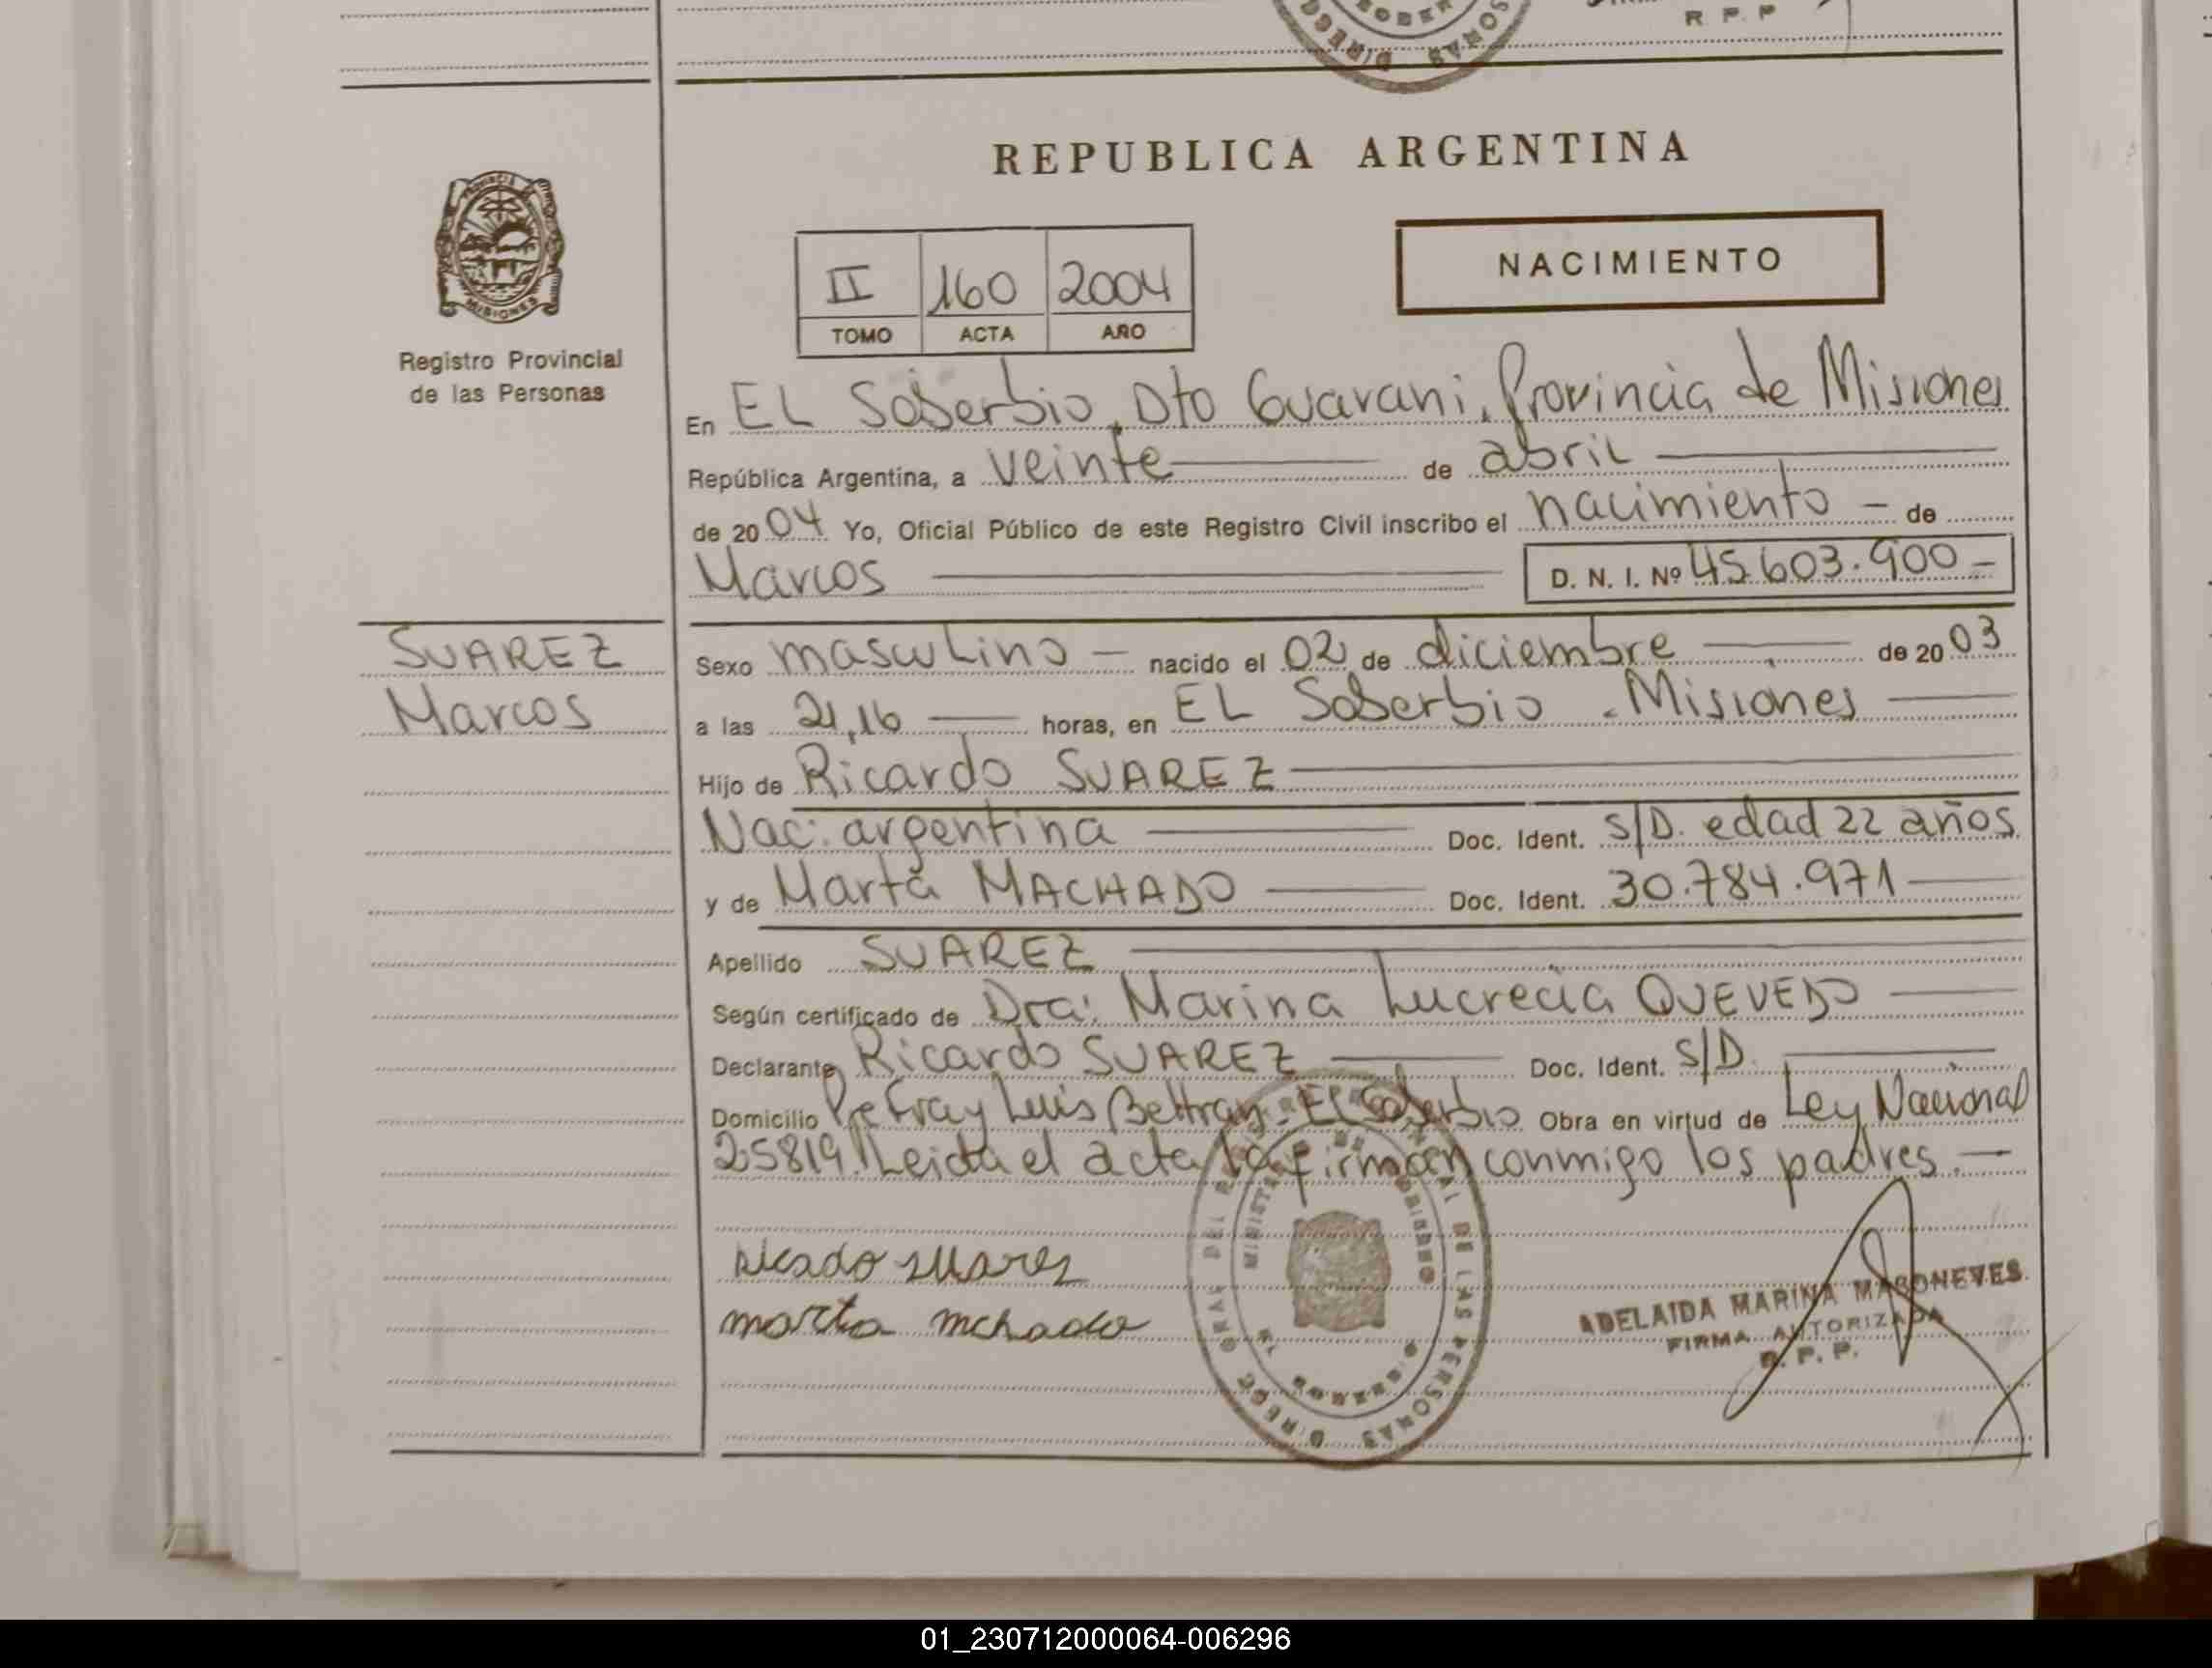 R. P. P
REPUBLICA ARGENTINA
PROVINCIA
MISIONES
Registro Provincial
de las Personas
II 160 2004
TOMO ACTA AÑO
NACIMIENTO
En EL Soberbio, Dto Guaraní, Provincia de Misiones
República Argentina, a veinte de abril
de 2004 Yo, Oficial Público de este Registro Civil inscribo el nacimiento - de
Marcos
D. N. I. Nº 45.603.900 -
SUAREZ
Marcos
Sexo masculino - nacido el 02 de diciembre de 2003
a las 21,16 horas, en EL Soberbio - Misiones
Hijo de Ricardo SUAREZ
Nac: argentina Doc. Ident. S/D. edad 22 años
y de Marta MACHADO Doc. Ident. 30.784.971
Apellido SUAREZ
Según certificado de Dra: Marina Lucrecia QUEVEDO
Declarante Ricardo SUAREZ Doc. Ident. S/D.
Domicilio Pje Fray Luis Beltran. El Soberbio Obra en virtud de Ley Nacional
25819. Leida el acta la firman conmigo los padres. -
Ricado suares
marta mchado
DE LAS PERSONAS
ADELAIDA MARINA MARONEVES
FIRMA AUTORIZADA
R. P. P.
01_230712000064-006296